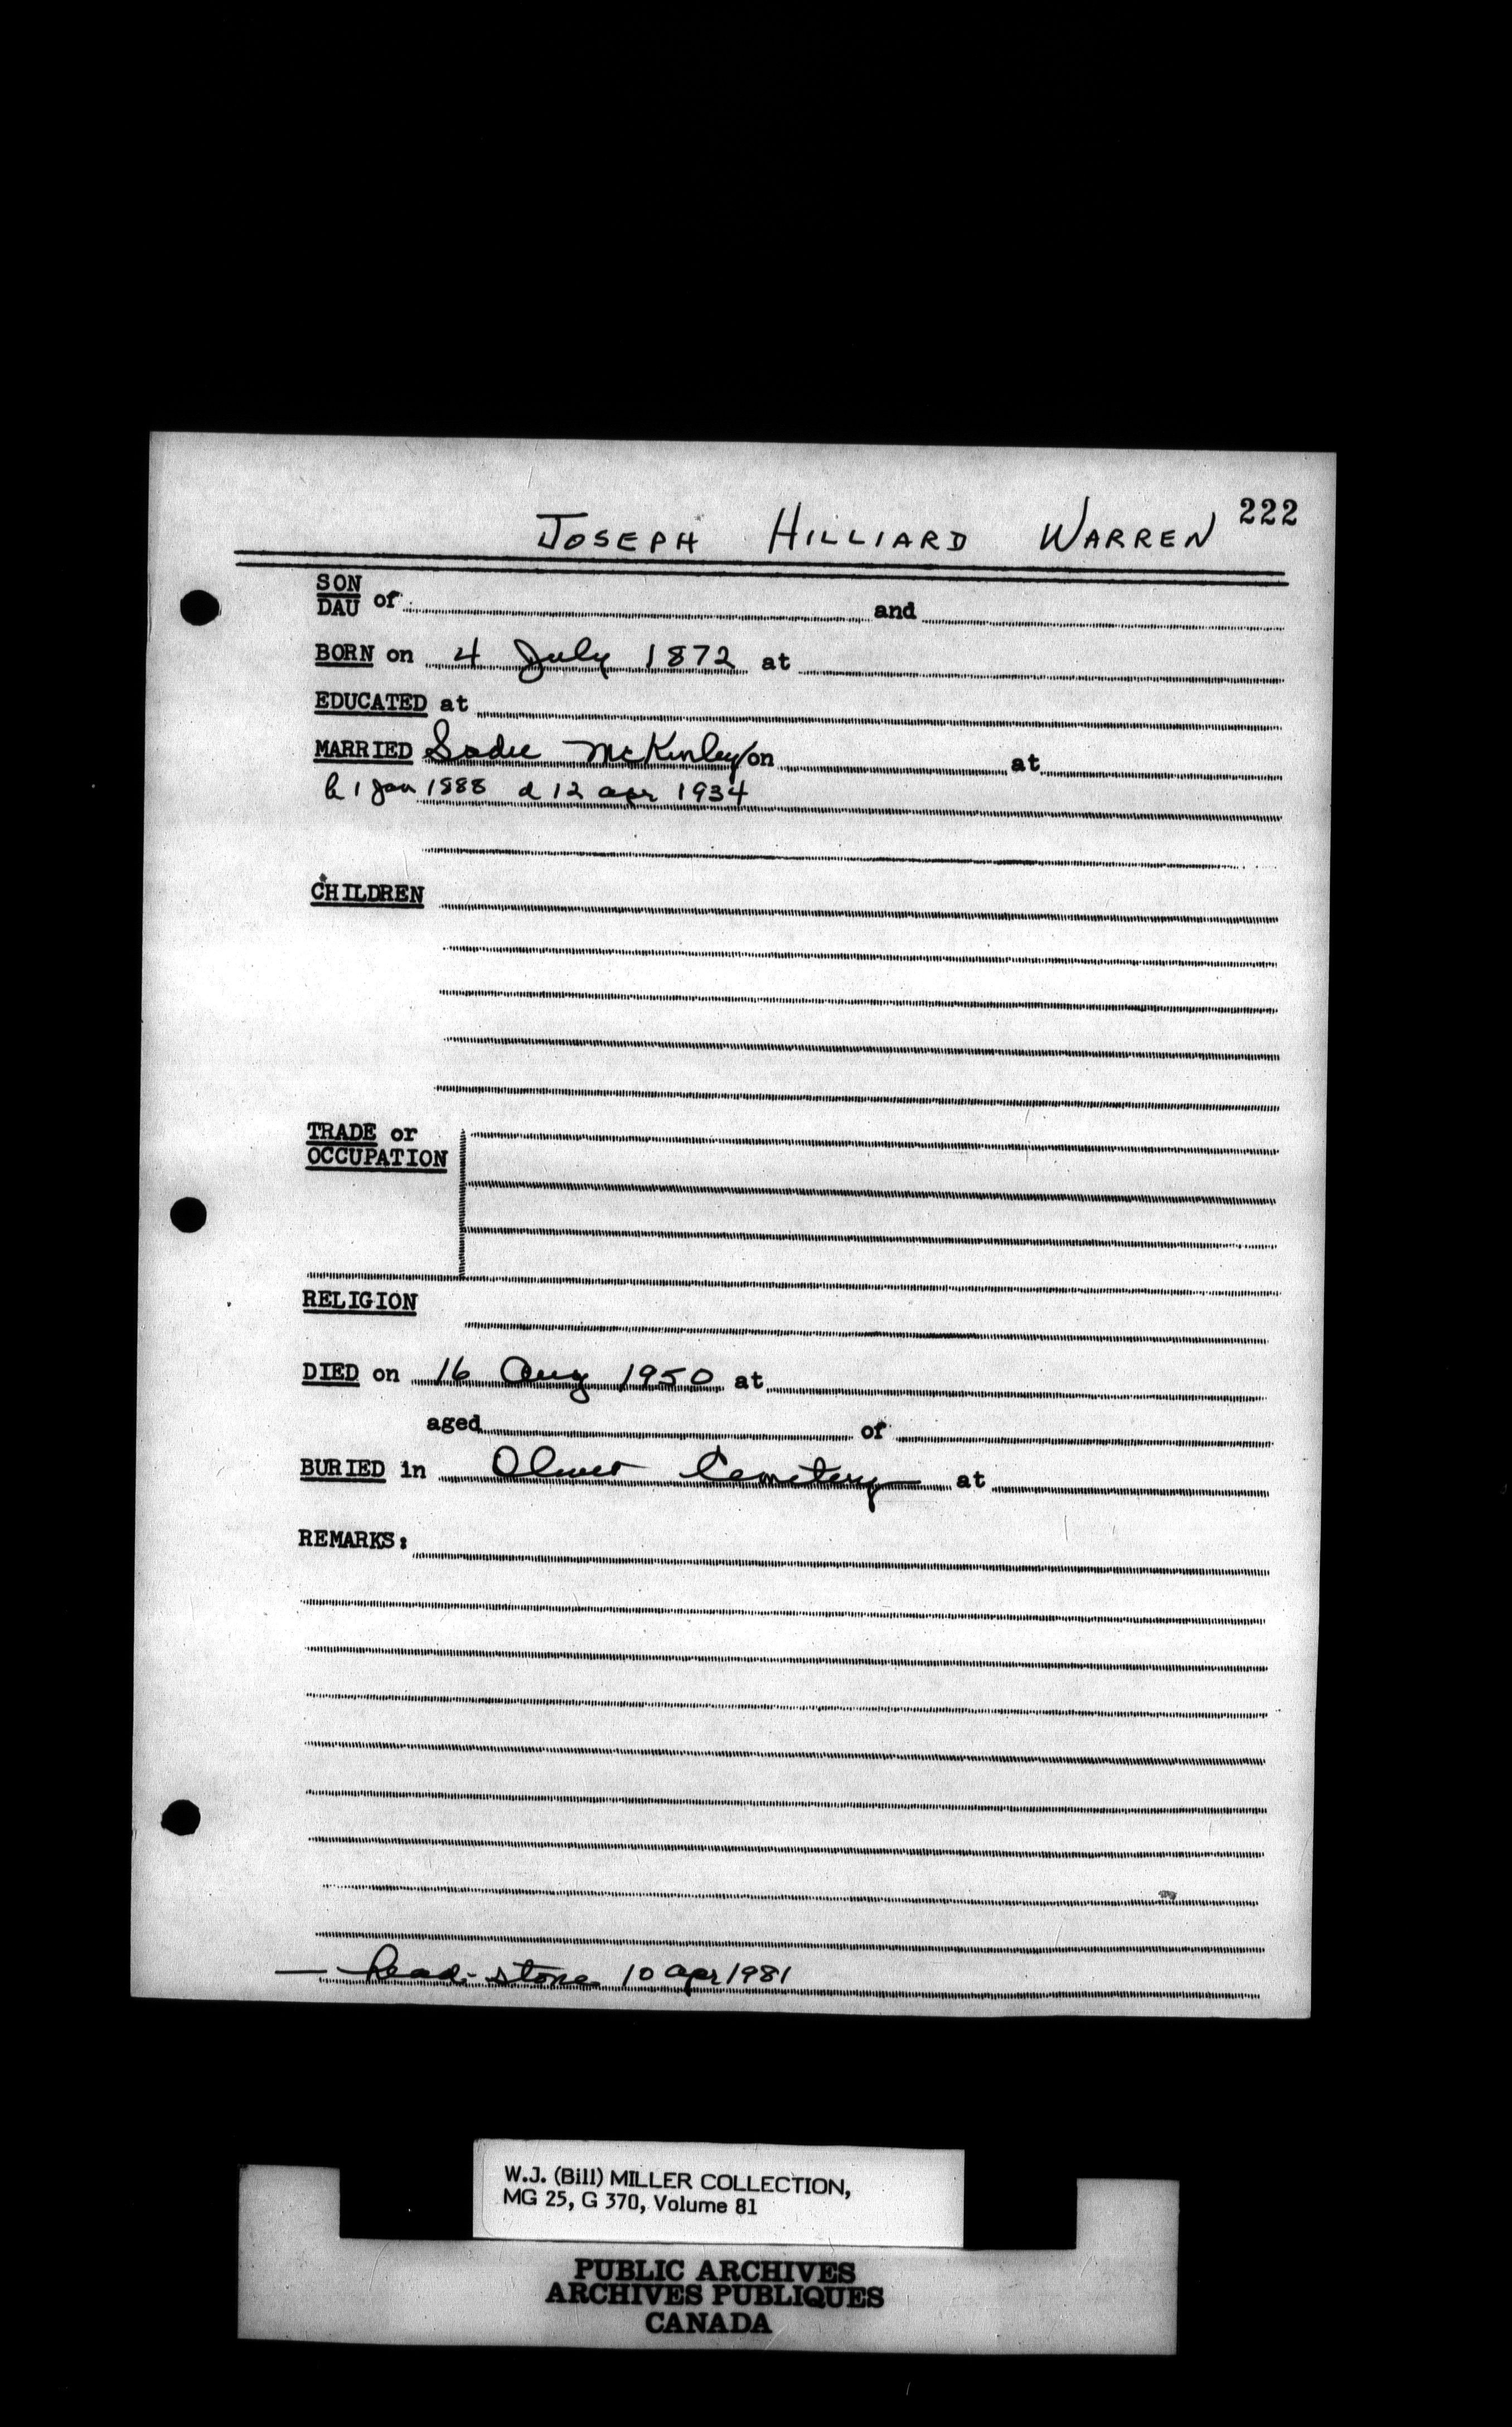 222
JOSEPH HILLIARD WARREN
SON
DAU of and
BORN on 4 July 1872 at
EDUCATED at
MARRIED Sadie McKinley on at
b 1 Jan 1888 d 12 apr 1934
CHILDREN
TRADE or
OCCUPATION
RELIGION
DIED on 16 Aug 1950 at
aged of
BURIED in Olivet Cemetery at
REMARKS:
— head-stone 10 apr 1981
W.J. (Bill) MILLER COLLECTION,
MG 25, G 370, Volume 81
PUBLIC ARCHIVES
ARCHIVES PUBLIQUES
CANADA